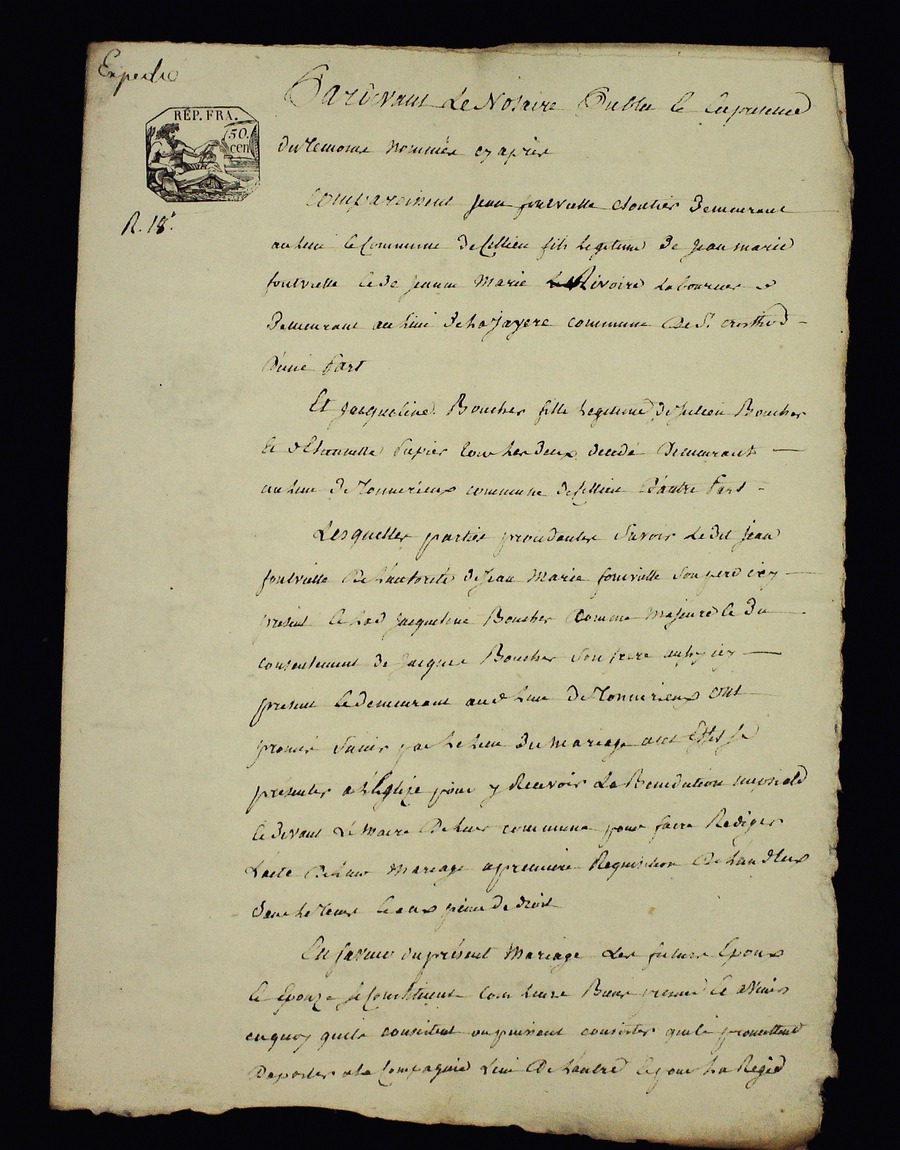 Expedie
RÉP. FRA.
50.
cen
R. 18.
Pardevant Le Notaire Public Et En presence
des Temoins Nommés cy apres
Comparoissent jean fontvielle cloutier Demeurant
au Lieu Et Commune de fils Legitime De jean marie
fontvielle Et De jeanne Marie Rivoire Laboureur
Demeurant au Lieu De La commune De St.
D'une Part
Et jacqueline Boucher fille Legitime de julien Boucher
Et tous Les Deux decedé Demeurant
au Lieu De commune de D'autre Part
Lesquelles parties procedantes Savoir Ledit jean
fontvielle De L'autorité de jean Marie fontvielle Son pere icy
present Et Lad jacqueline Boucher Comme Majeure Et Du
consentement de jacques Boucher Son frere aussy icy
present Et demeurant aud Lieu De ont
promis S'unir par Le Lien Du mariage a cet Effet se
presenter a L'Eglize pour y Recevoir La Benediction nupsiale
Et devant Le Maire De Leur commune pour faire Rediger
L'acte De Leur Mariage a premiere Requisition De L'un D'eux
Sous Les Et aux peine de droit
En faveur du présent Mariage Les futurs Epoux
Et Epouze se Constituent tous Leurs Biens present Et a Venir
en quoy qu'ils consistent ou puissent consister qu'ils promettent
D'aporter a La Compagnie L'un De L'autre Et pour La Regie